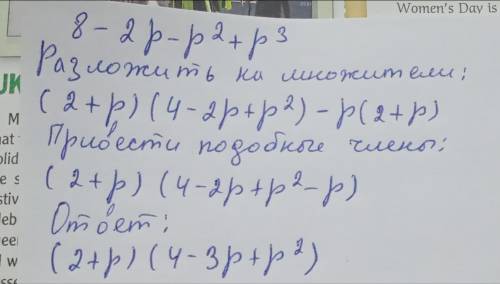 Women's Day is
8 - 2p - p² + p³
Разложить на множители:
(2+p)(4-2p+p²)-p(2+p)
Привести подобные члены:
(2+p)(4-2p+p²-p)
Ответ:
(2+p)(4-3p+p²)